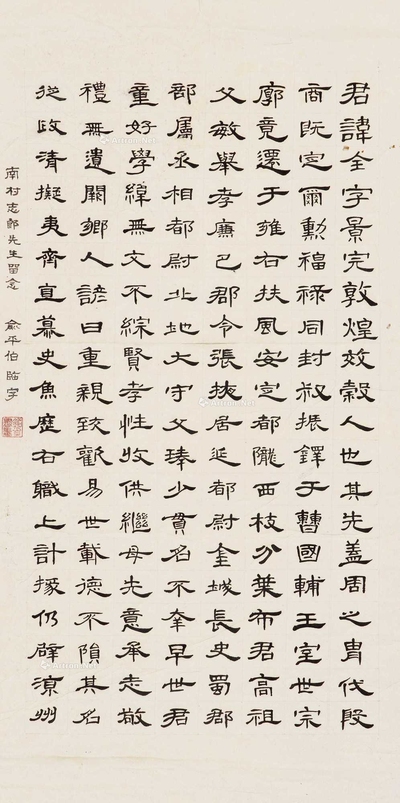 君諱全字景完敦煌效穀人也其先蓋周之冑伐殷
商既定爾勳福祿同封叔振鐸于曹國輔王室世宗
廓竟還于雍右扶風安定都隴西枝分葉布君高祖
父敏舉孝廉巴郡令張掖居延都尉金城長史蜀郡
部屬丞相都尉北地大守父琫少貫名不幸早世君
童好學緯無文不綜賢孝性收供繼母先意承志敬
禮無遺闕鄉人諺曰重親致歡易世載德不隕其名
從政清擬夷齊直慕史魚歷右職上計掾仍辟涼州
南村志郎先生留念 俞平伯臨字